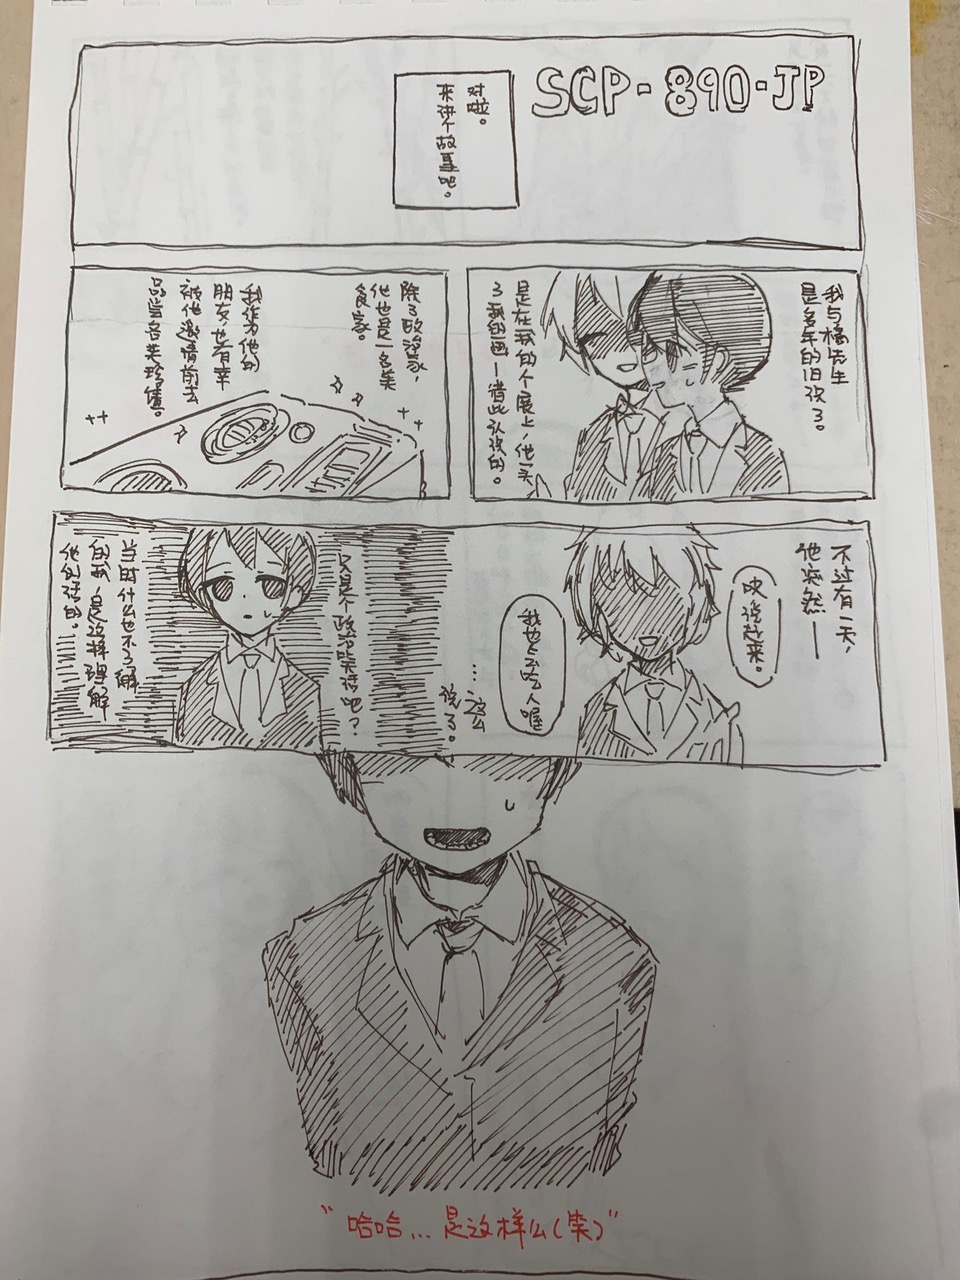 SCP-890-JP
对啦。
来讲个故事吧。
我与橘先生
是多年的旧识了。
是在我的个展上,他买
了我的画—借此认识的。
除了政治家,
他也是一名美
食家。
我作为他的
朋友,也有幸
被他邀请前去
品尝各类珍馐。
不过有一天,
他突然——
哎说起来。
我也会吃人喔
…这么
说了。
只是个政治笑话吧?
当时什么也不了解
的我,是这样理解
他的话的。
"哈哈...是这样么(笑)"